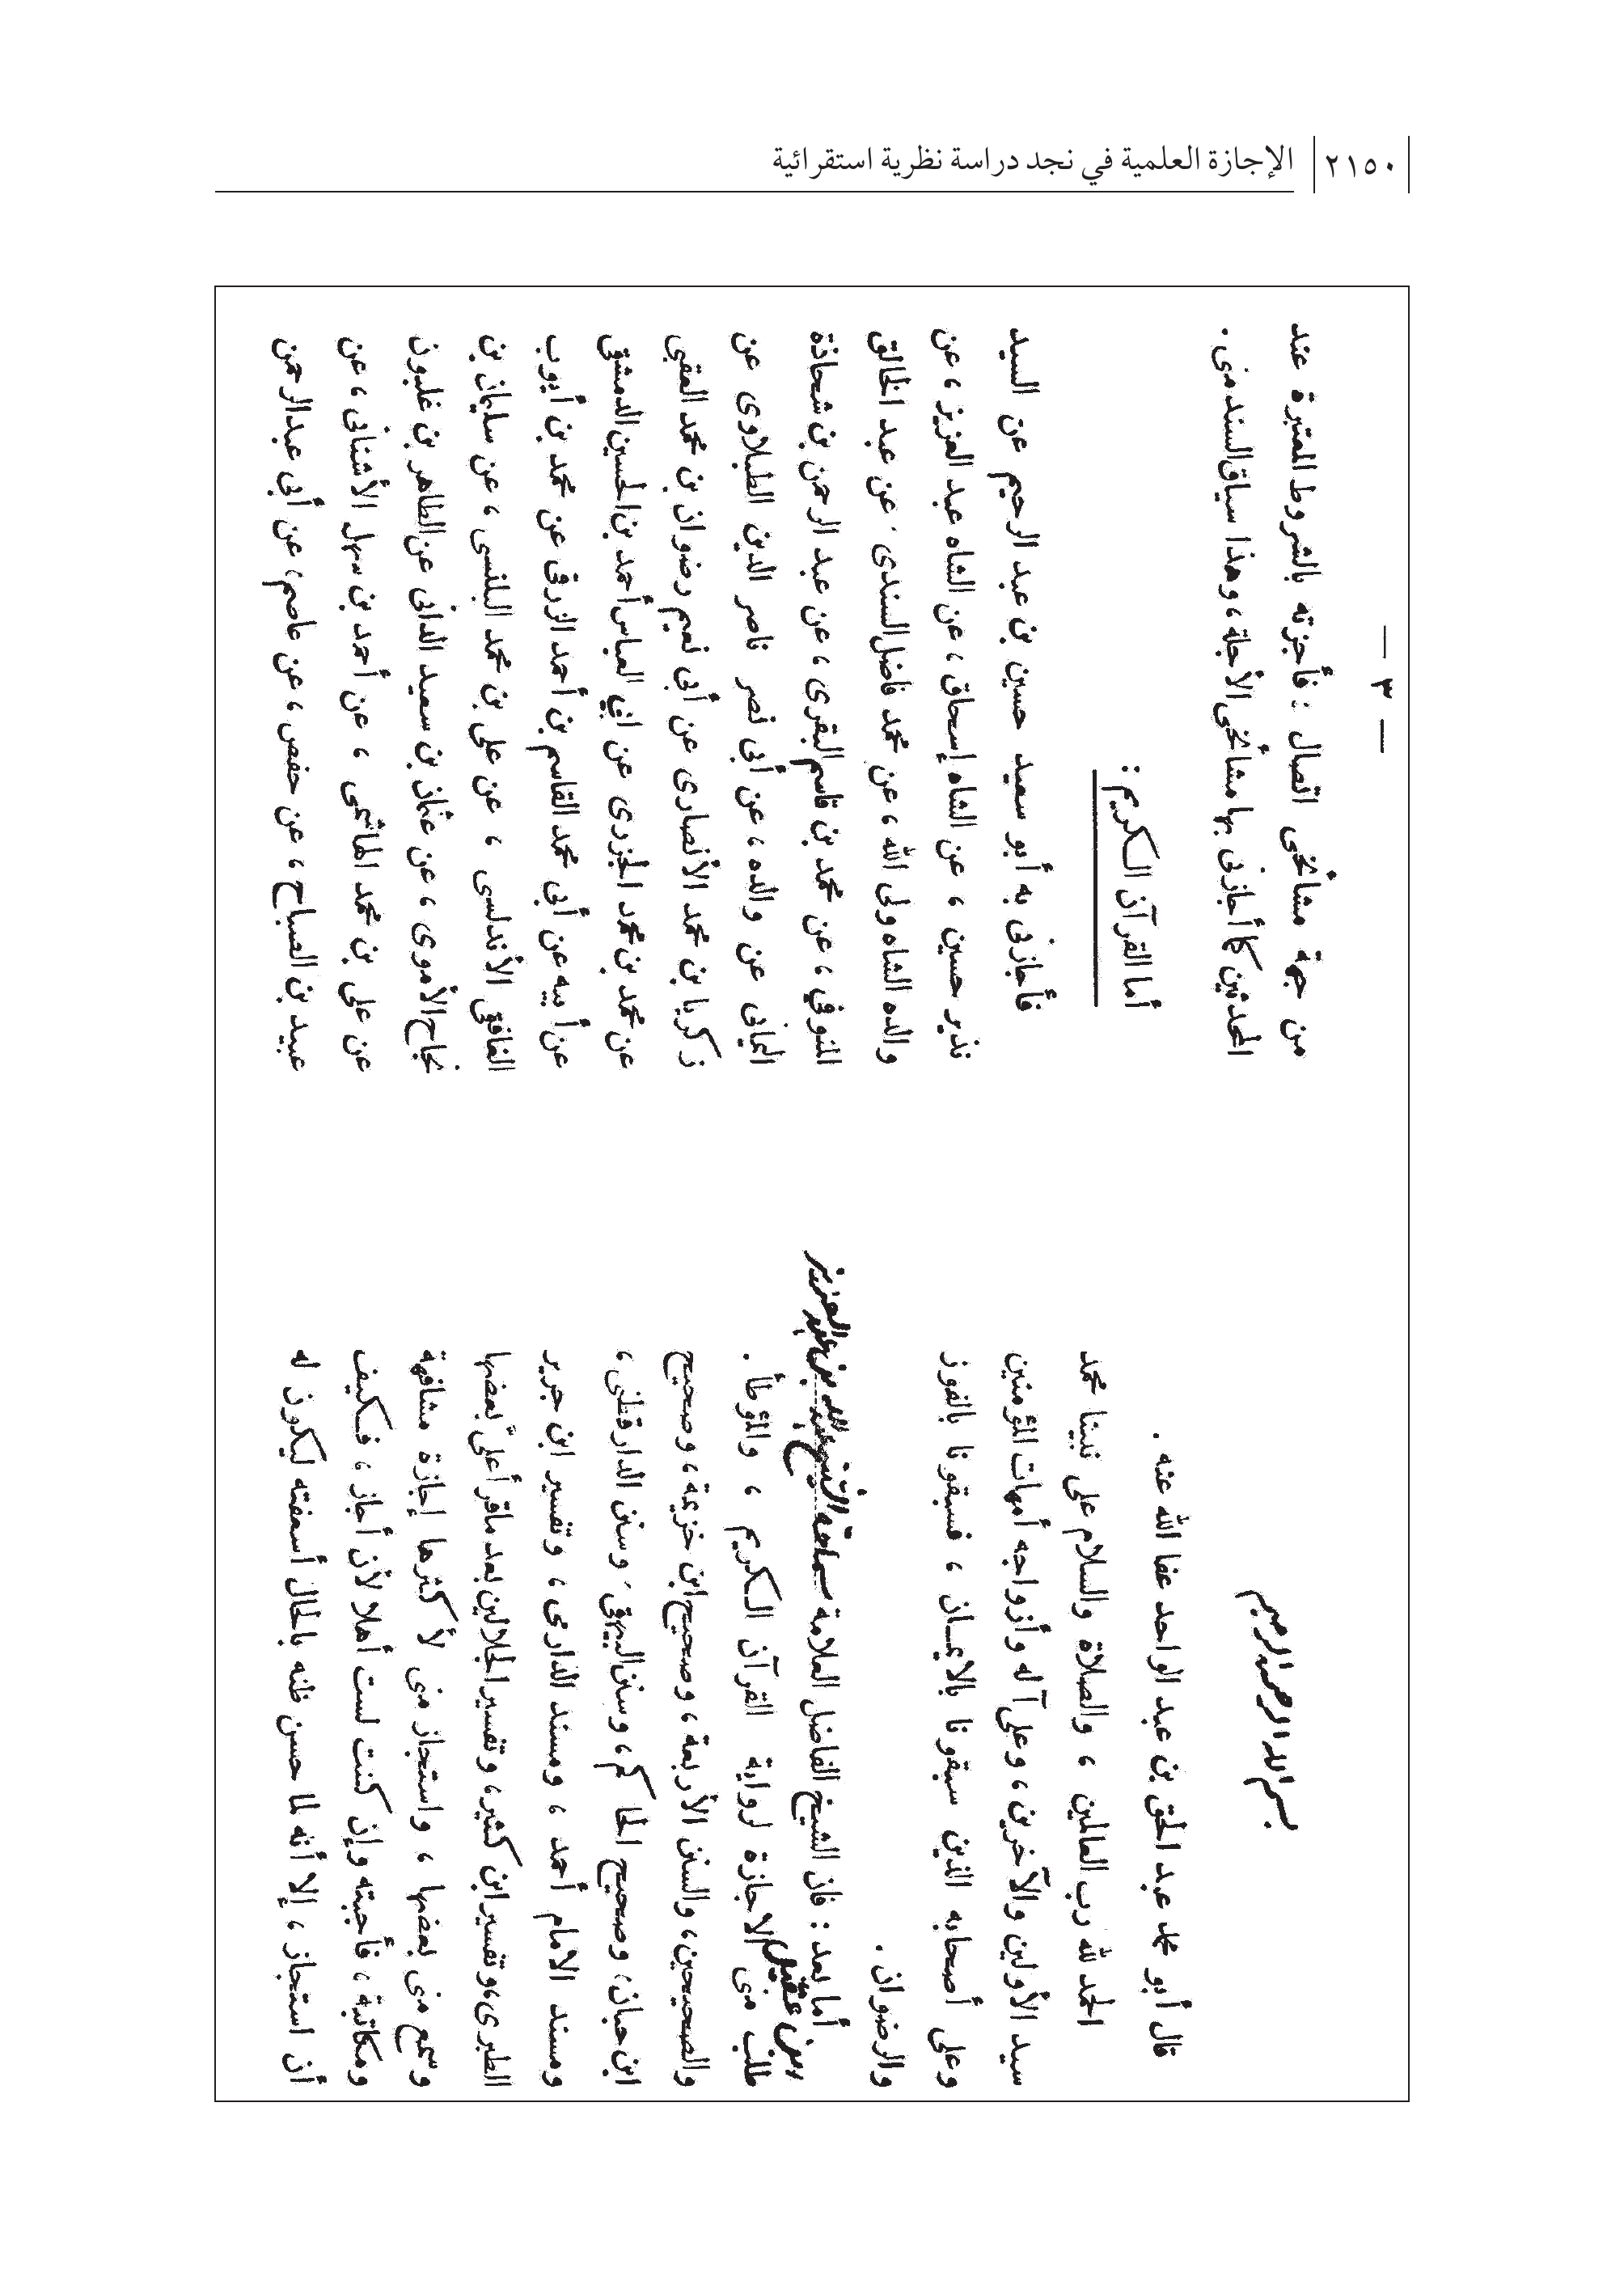 ٢١٥٠
الإجازة العلمية في نجد دراسة نظرية استقرائية
بسم الله الرحمن الرحيم
قال أبو محمد عبد الحق بن عبد الواحد عفا الله عنه .
الحمد لله رب العالمين ، والصلاة والسلام على نبينا محمد
سيد الأولين والآخرين ، وعلى آله وأزواجه أمهات المؤمنين
وعلى أصحابه الذين سبقونا بالايمـان ، فسبقونا بالفوز
والرضوان .
أما بعد : فان الشيخ الفاضل العلامة سماحة الشيخ عبد الله بن عبد العزيز
بن عقيل
طلب منى الاجازة لرواية القرآن الـكريم ، والمؤطأ .
والصحيحين ، والسنن الأربعة ، وصحيح ابن خزيمة ، وصحيح
ابن حبان ، وصحيح الحاكم ، وسنن البيهقى ، وسنن الدارقطنى ،
ومسند الامام أحمد ، ومسند الدارمى ، وتفسير ابن جرير
الطبرى ، وتفسير ابن كثير ، وتفسير الجلالين بعد ماقرأ علىَّ بعضها
وسمع منى بعضها ، واستجاز منى لأكثرها إجازة مشافهة
ومكاتبة ، فأجبته وإن كنت لست أهلا لأن أجاز ، فـكيف
أن استجاز ، إلا أنه لما حسن ظنه بالحال أسعفته ليكون له
— ٣ —
من جهة مشائخى اتصال : فأجزته بالشروط المعتبرة عند
المحدثين كما أجازنى بها مشائخى الأجلة ، وهذا سياق السند منى .
أما القرآن الـكريم :
فأجازنى به أبو سعيد حسين بن عبد الرحيم عن السيد
نذير حسين ، عن الشاه إسحاق ، عن الشاه عبد العزيز ، عن
والده الشاه ولى الله ، عن محمد فاضل السندى ، عن عبد الخالق
المنوفي ، عن محمد بن قاسم البقرى ، عن عبد الرحمن بن شحاذة
اليمانى عن والده ، عن أبى نصر ناصر الدين الطبلاوى عن
زكريا بن محمد الأنصارى عن أبى نعيم رضوان بن محمد العقبى
عن محمد بن محمد الجزرى عن ابي العباس أحمد بن الحسين الدمشقى
عن أبيه عن أبى محمد القاسم بن أحمد الزرقى عن محمد بن أيوب
الغافقى الأندلسى ، عن على بن محمد البلنسى ، عن سليمان بن
نجاح الأموى ، عن عثمان بن سعيد الدانى عن الطاهر بن غلبون
عن على بن محمد الهاشمى ، عن أحمد بن سهل الأشنانى ، عن
عبيد بن الصباح ، عن حفص ، عن عاصم ، عن أبى عبد الرحمن